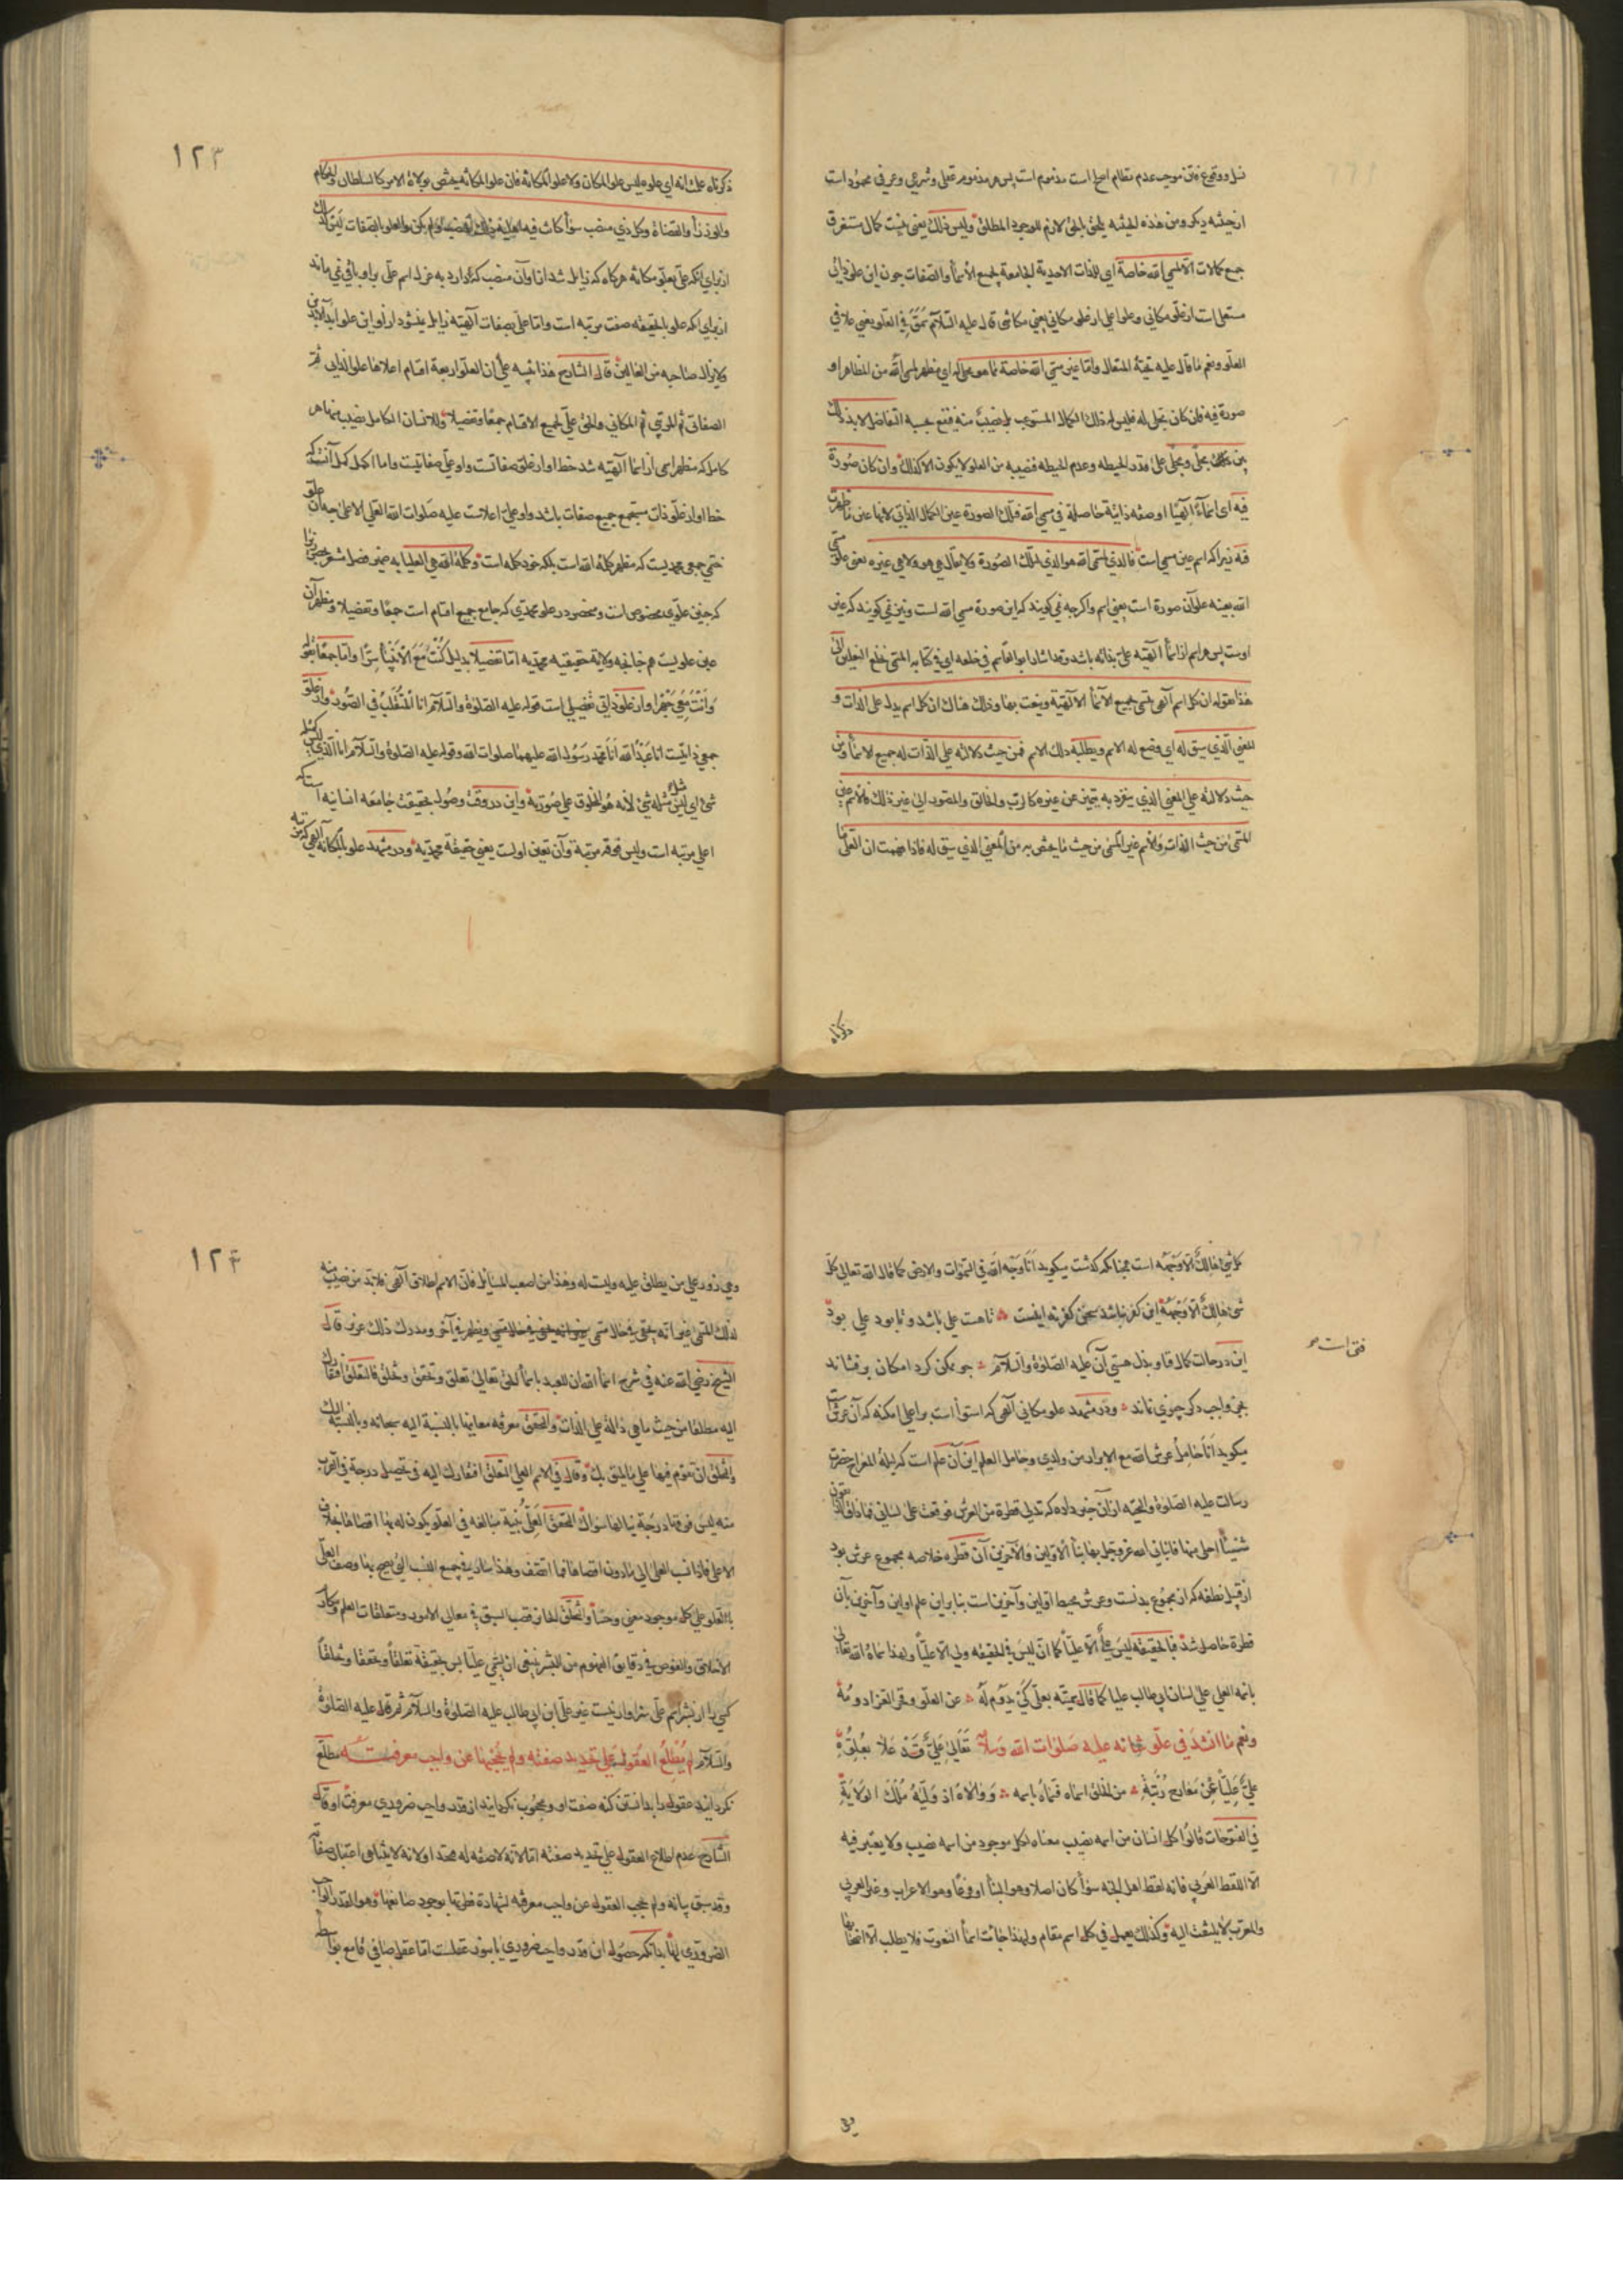 نسل ووقوع فتن موجب عدم نظام اصلح است مذموم است پس هر مذموم عقلی وشرعی وعرفی محمود است
از حیثیه دیکر ومن هذه الحیثیه یلحق بالحق لازم للوجود المطلق ولیس ذلک یعنی نیست کمال مستغرق
جمیع کمالات الا لمسمی الله خاصة ای للذات الاحدیة الجامعة لجمیع الأسمأ والصفات چون این علو ذاتی
مستعلی است از علو مکانی وعلو اعلی از علو مکانی یعنی مکانتی قال علیه السلام فی العلو یعنی علا فی
العلو ونعم ما قال علیه تحیة المتعال واما غیر مسمی الله خاصة مما هو مجلی له ای مظهر لمسمی الله من المظاهر او
صورة فیه فان کان مجلی له فلیس له ذلک الکمال المستوعب بل نصیب منه فیقع بحسبه التفاضل لا بد ذلک
بین مجلی ومجلی علی قدر الحیطه وعدم الحیطه فنصیبه من العلو لا یکون الا کذلک وان کان صورة
فیه ای اسماء الهیا او صفه ذاتیة حاصلة فی مسمی الله فتلک الصورة عین الکمال الذاتی لانها عین ما ظهرت
فیه زیرا که اسم عین مسمی است فالذی لمسمی الله هو الذی لتلک الصورة ولا یقال هی هو ولا هی غیره یعنی علو مسمی
الله بعینه علو آن صورة است یعنی اسم واکرچه نمی کویند که این صورة مسمی الله است ونیز نمی کویند که غیر
اوست پس هر اسم از اسمأ الهیه علی بذاته باشد وقد اشار ابو القاسم فی خلعه ای فی کتابه المسمی خلع النعلین الی
هذا بقوله ان کل اسم الهی یتسمی بجمیع الأسمأ الالهیة وینعت بها وذلک هناک ان کل اسم یدل علی الذات و
للمعنی الذی سیق له ای وضع له الاسم ویطلبه ذلک الاسم فمن حیث دلالته علی الذات له جمیع الاسمأ ومن
حیث دلالته علی المعنی الذی ینفرد به یتمیز عن غیره کالرب والخالق والمصور الی غیر ذلک فالاسم عین
المسمی من حیث الذات والاسم غیر المسمی من حیث ما یختص به من المعنی الذی سیق له فاذا فهمت ان العلی ما
ذکرناه
۱۲۳
ذکرناه علمت انه ای علوه لیس علو المکان ولا علو المکانة فان علو المکانة یختص بولاة الامر کالسلطان والحکام
والوزرأ والقضاة وکل ذی منصب سوأ کانت فیه اهلیة ذلک المنصب او لم یکن والعلو بالصفات لیس کذلک
از برای آنکه علی بعلو مکانة هرکاه که زایل شد از او آن منصب که دارد به عزل اسم علی بر او باقی نمی ماند
از برای آنکه علو بالحقیقه صفت مرتبه است واما علی بصفات آلهیه زایل نیشود از او این علو ابد الابدین
ولا یزال صاحبه من الغالبین قال الشارح هذا تنبیه علی ان العلو اربعة اقسام اعلاها علو الذاتی ثم
الصفاتی ثم المرتبی ثم المکانی والحق علی لجمیع الاقسام جمعا وتفصیلا وللانسان الکامل نصیب منها هر
کامل که مظهر اسمی از اسما آلهیه شد حظ او از علو صفاتست واو علی صفاتیست واما اکمل کمل آنست که
حظ او از علو ذات مستجمع جمیع صفات باشد واو علی اعلاست علیه صلوات الله العلی الاعلی چه آن علو
ختمی جمعی محمدیست که مظهر کلمة الله است بلکه خود کلمه است وکلمة الله هی العلیا به ضمیر فصل مشعر بحصر
که چنین علوی مخصوص است ومحصور در علو محمدی که جامع جمیع اقسام است جمعا وتفصیلا ومظهر آن
عین علویست هم خاتمه ولایة حقیقیه محمدیه اما تفصیلا بدلیل کنت مع الانبیأ سرا واما جمعا بقوله
وانت معی جهرا واز علو ذاتی تفصیلی است قوله علیه الصلوة والسلام انا المتقلب فی الصور واز علو
جمعی ذاتیست انا عبد الله انا محمد رسول الله علیهما صلوات الله وقوله علیه الصلوة والسلام انا الذی لیس کمثله
شئ ای لیس مثل مثله شئ لأنه هو المخلوق علی صورته واین در وقت وصول بحقیقت جامعه انسانیه است که
اعلی مرتبه است ولیس فوقه مرتبة وآن تعین اولست یعنی حقیقة محمدیه ودر مشهد علو بالمکانة
کل شئ هالک الا وجهه است همچنانکه کذشت میکوید انا وجه الله فی السموات والارض کما قال الله تعالی کل
شئ هالک الا وجهه این کفر نباشد سخن کفر نه اینست تا هست علی باشد وتا بود علی بود
این در حالت کمال فنا وبذل هستی آن علیه الصلوة والسلام چو ممکن کرد امکان بر فشاند
بجز واجب دکر چیزی نماند ودر مشهد علو مکانی آلهی که استوأ است بر اعلی امکنه که آن عرش است
میکوید انا حامل عرش الله مع الابرار من ولدی وحامل العلم این آن علم است که لیلة المعراج حضرت
رسالت علیه الصلوة والتحیه از آن خبر داده که تدلی قطرة من العرش فوقعت علی لسانی فما ذاق الذائقون
شیئا احلی منها فانبأنی الله عز وجل بها نبأ الاولین والآخرین آن قطره خلاصه مجموع عرش بود
از قبیل نطفه که از مجموع بدنست وعرش محیط اولین وآخرین است بنا بر این علم اولین وآخرین بآن
قطرة حاصل شد فبالحقیقه لیس علی الا علیا کما ان لیس فی الحقیقه ولی الا علیا ولهذا سماه الله تعالی
باسمه العلی علی لسان ابی طالب علیا کما قال سمیته بعلی کی یدوم له عز العلو وفخر العز ادومه
ونعم ما انشد فی علو شانه علیه صلوات الله وسلامه تعالی علی قد علا بعلوه
علی علیا عن معارج رتبة من الخلق اسماه فسماه باسمه ووالاه اذ ولیه ملک الولایة
فتوحات
فی الفتوحات قالوا کل انسان من اسمه نصیب معناه لکل موجود من اسمه نصیب ولا یعتبر فیه
الا اللفظ العربی فانه لفظ اهل الجنه سوأ کان اصلا وهو البنأ او فرعا وهو الاعراب وغیر العربی
والمعرب لا یلتفت الیه وکذلک یعمل فی کل اسم مقام ولهذا خالت اسمأ النعوت فلا یطلب الا اصحابها
وهی
۱۲۴
وهی زور علی من یطلق علیه ولیست له وهذا من اصعب المسایل فان الاسم اطلاق آلهی فلا بد من نصیب منه
لذلک المسمی غیر انه یخفی فی حال مسمی ویظهر فی آخر ومدرک ذلک عزیز قال
الشیخ رضی الله عنه فی شرح اسمأ الله ان للعبد باسمأ الحق تعالی تعلق وتحقق وتخلق فالتعلق افتقارک
الیه مطلقا من حیث ما هی دالة علی الذات والتحقق معرفة معانیها بالنسبة الیه سبحانه وبالنسبة الیک
والتخلق ان تقوم فیها علی ما یلیق بک وقال فی الاسم العلی التعلق افتقارک الیه فی تحصیل درجة فی القرب
منه لیس فوقها درجة ینالها سواک التحقق العلی بنیة مبالغة فی العلو یکون له بها اقصاها بخلاف
الاعلی فاذا نسب العلی الی ما دون اقصاها فما اتصف وهذا سار فی جمیع النسب التی یصح بها وصف العلی
بالعلو علی کل موجود معنی وحسا والتخلق لمن حاز قصب السبق فی معالی الامور ومتعلقات العلم ومکارم
الاخلاق والغوص فی دقایق الفهوم من البشر ینبغی ان یسمی علیا پس بحقیقة تعلقا وتحققا وتخلقا
کسی را از بشر اسم علی سزاوار نیست غیر علی ابن ابی طالب علیه الصلوة والسلام ثم قال علیه الصلوة
والسلام لم یطلع العقول علی تحدید صفته ولم یحجبها عن واجب معرفته مطلع
نکردانید عقول را بدانستن کنه صفت او ومحجوب نکردانید از قدر واجب ضروری معرفت او قال
الشارح عدم اطلاع العقول علی تحدید صفته اما لانه لا صفه له محدد او لانه لا یتناهی اعتبار صفاته
وقد سبق بیانه ولم یحجب العقول عن واجب معرفته لشهادة فطرتها بوجود صانعها وهو القدر الواجب
الضروری لها بدانکه حصول این قدر واجب ضروری یا بنور عقلست اما عقل صافی قامع بواسطه